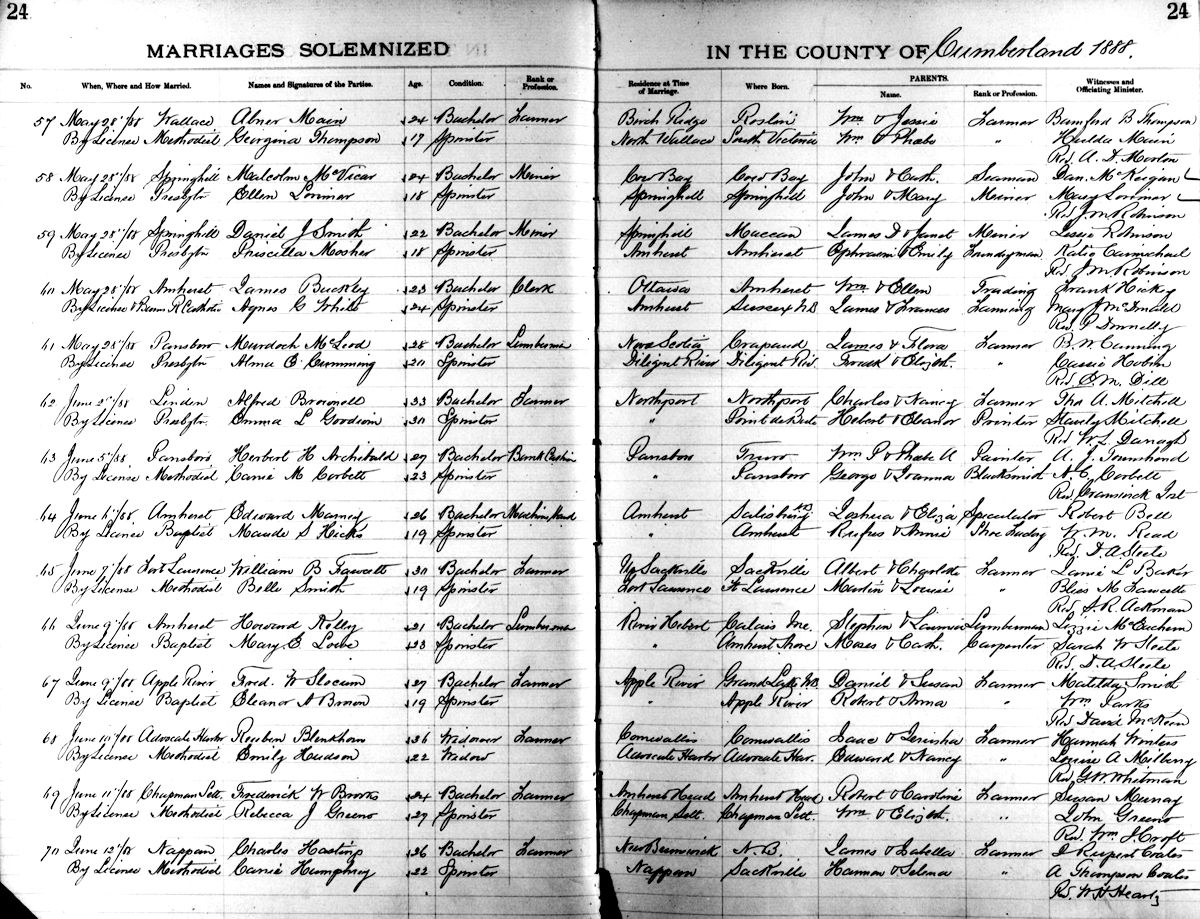 24 24
MARRIAGES SOLEMNIZED IN THE COUNTY OF Cumberland 1888.
No. When, Where and How Married. Names and Signatures of the Parties. Age. Condition. Rank or Profession. Residence at Time of Marriage. Where Born. PARENTS. Name. Rank or Profession. Witnesses and Officiating Minister.
57 May 28"/88 Wallace Abner Main 24 Bachelor Farmer Birch Ridge Roslin Wm & Jessie Farmer Bamford B Thompson
By License Methodist Georgina Thompson 17 Spinster North Wallace South Victoria Wm & Phebe " Hulda Main
Rev. A. D. Morton
58 May 28"/88 Springhill Malcolm McVicar 24 Bachelor Miner Cow Bay Cow Bay John & Cath. Seaman Dan. McKeigan
By License Presbytr Ellen Lorimer 18 Spinster Springhill Springhill John & Mary Meiner Mary Lorimer
Rev J M Robinson
59 May 28"/88 Springhill Daniel J Smith 22 Bachelor Meinor Springhill Maccan James D & Janet Meiner Lessie Robinson
By License Presbytr Priscilla Mosher 18 Spinster Amherst Amherst Ephraim & Emily Katie Carmichael
Rev. J M Robinson
60 May 28"/88 Amherst James Buckley 23 Bachelor Clerk Ottawa Amherst Wm & Ellen Trading Frank Hickey
By License & Banns R Catholic Agnes G White 24 Spinster Amherst Sussex N.B. James & Frances Farming Mary J McDonald
Rev. P Donnelly
61 May 28"/88 Parsboro Murdoch McLeod 28 Bachelor Lumberman Nova Scotia Crapaud James & Flora Farmer B. W
By License Presbytr Alma E Cumming 20 Spinster Diligent River Diligent Riv. Frank & Elizth. " Cassie
Rev. E. M. Dill
62 June 2"/88 Linden Alfred Brownell 33 Bachelor Farmer Northport Northport Charles & Nancy Farmer Tho A. Mitchell
By License Presbytr. Emma L Goodwin 30 Spinster " Point de Bute & Eleanor Stanly Mitchell
Rev W. L.
63 June 5"/88 Parsboro Herbert H Archibald 27 Bachelor Bank Cashier Parsboro Truro Wm P & Phebe A Painter A. J. Townshend
By License Methodist Carrie M Corbett 23 Spinster " Parsboro George & Joanna Blacksmith N. C. Corbett
Rev Cranswick Jost
64 June 6"/88 Amherst Edward 26 Bachelor Machine Hand Amherst Salisbury NB Joshua & Eliza Speculator Robert Bell
By License Baptist Maude S Hicks 19 Spinster " Amherst Rufus & Annie Shoe W. M. Read
Rev. D. A Steele
65 June 7"/88 Fort Lawrence William B Fawcett 30 Bachelor Farmer Up Sackville Sackville Albert & Charlotte Farmer Janie L Baker
By License Methodist Belle Smith 19 Spinster Fort Lawrence Ft Lawrence Martin & Louise " Bliss M Fawcett
Rev. S. R. Ackman
66 June 9"/88 Amherst Howard Kelley 21 Bachelor Lumberman River Hebert Calais Me. Stephen & Lumberman Lizzie McEachern
By License Baptist Mary E Lowe 23 Spinster " Amherst Shore Moses & Cath. Carpenter Sarah W Steele
Rev. D. A. Steele
67 June 9"/88 Apple River Fred. W Slocum 27 Bachelor Farmer Apple River Grand Lake N.B. Daniel & Susan Farmer Matilda Smith
By License Baptist Eleanor A Brown 19 Spinster " Apple River Robert & Anna " Wm Parks
Rev David McKeen
68 June 10"/88 Advocate Harbor Reuben Blenkhorn 36 Widower Farmer Cornwallis Cornwallis Isaac & Farmer Hannah Winters
By License Methodist Emily Hudson 22 Widow Advocate Harbor Advocate Har. Edward & Nancy " Louise A Milberry
Rev. G W Whitman
69 June 11"/88 Chapman Sett. Frederick W Brooks 24 Bachelor Farmer Amherst Head Amherst Head Robert & Caroline Farmer Susan Murray
By License Methodist Rebecca J Greeno 27 Spinster Chapman Sett. Chapman Sett. Wm & Elizth. " John Greeno
Rev. Wm J Croft
70 June 12"/88 Nappan Charles Hastings 26 Bachelor Farmer New Brunswick N. B. James & Isabella Farmer D Rupert Coates
By License Methodist Carrie Humphrey 22 Spinster Nappan Sackville Harmon & Selena " A Thompson Coates
Rev. W H Heartz